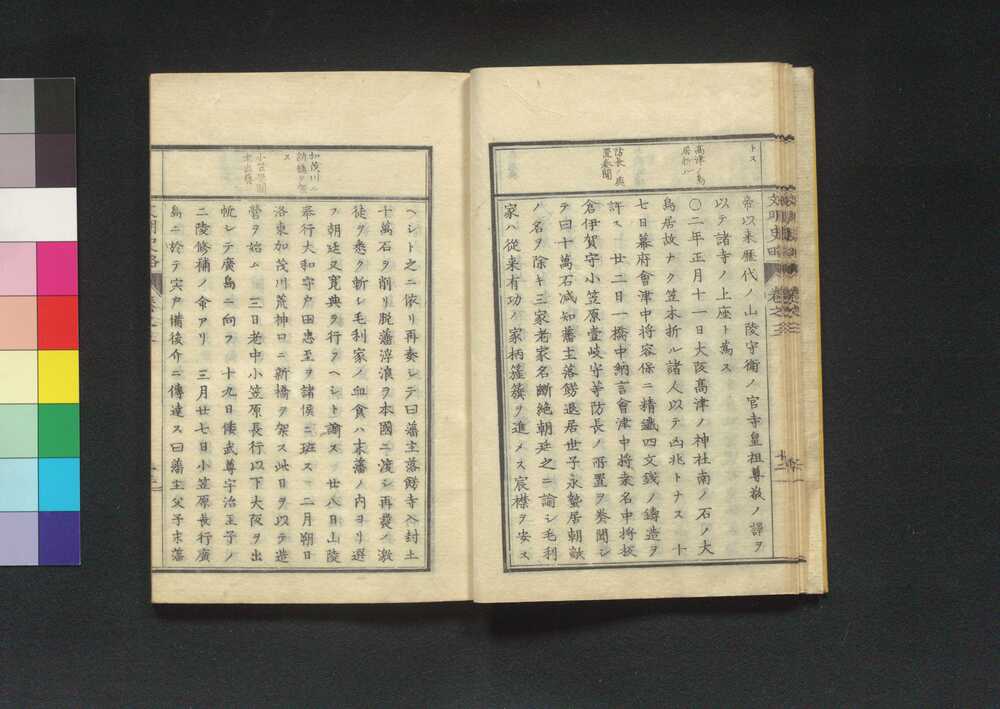 トス
高津ノ鳥
居折ル
防長ノ處
置奏聞
帝以来歴代ノ山陵守衛ノ官寺皇祖尊敬ノ譯ヲ
以テ諸寺ノ上座ト為ス
〇二年正月十一日大阪高津ノ神社南ノ石ノ大
鳥居故ナク笠木折ル諸人以テ凶兆トナス 十
七日幕府會津中将容保ニ精鐵四文銭ノ鋳造ヲ
許ス 廿二日一橋中納言會津中将桑名中将板
倉伊賀守小笠原壹岐守等防長ノ所置ヲ奏聞シ
テ曰十萬石減知藩主落飾退居世子永蟄居朝敵
ノ名ヲ除キ三家老家名断絶朝廷之ニ諭シ毛利
家ハ従来有功ノ家柄薩籏ヲ進メス宸襟ヲ安ス
文明史略 巻之三 十二
加茂川ニ
新橋ヲ架
ス
小笠原閣
老出藝
ヘシト之ニ依リ再奏シテ曰藩主落飾寺入封土
十萬石ヲ削リ脱藩浮浪ヲ本國ニ渡シ再発ノ激
徒ヲ悉ク斬シ毛利家ノ血食ハ末藩ノ内ヨリ選
フ朝廷又寛典ヲ行フヘシト諭ス 廿八日山陵
奉行大和守戸田忠至ヲ諸侯ニ班ス 二月朔日
洛東加茂川荒神口ニ新橋ヲ架ス此日ヲ以テ造
營ヲ始ム 三日老中小笠原長行以下大阪ヲ出
帆シテ廣島ニ向フ 十九日倭武尊宇治王子ノ
二陵修補ノ命アリ 三月廿七日小笠原長行廣
島ニ於テ宍戸備後介ニ傳達ス曰藩主父子末藩